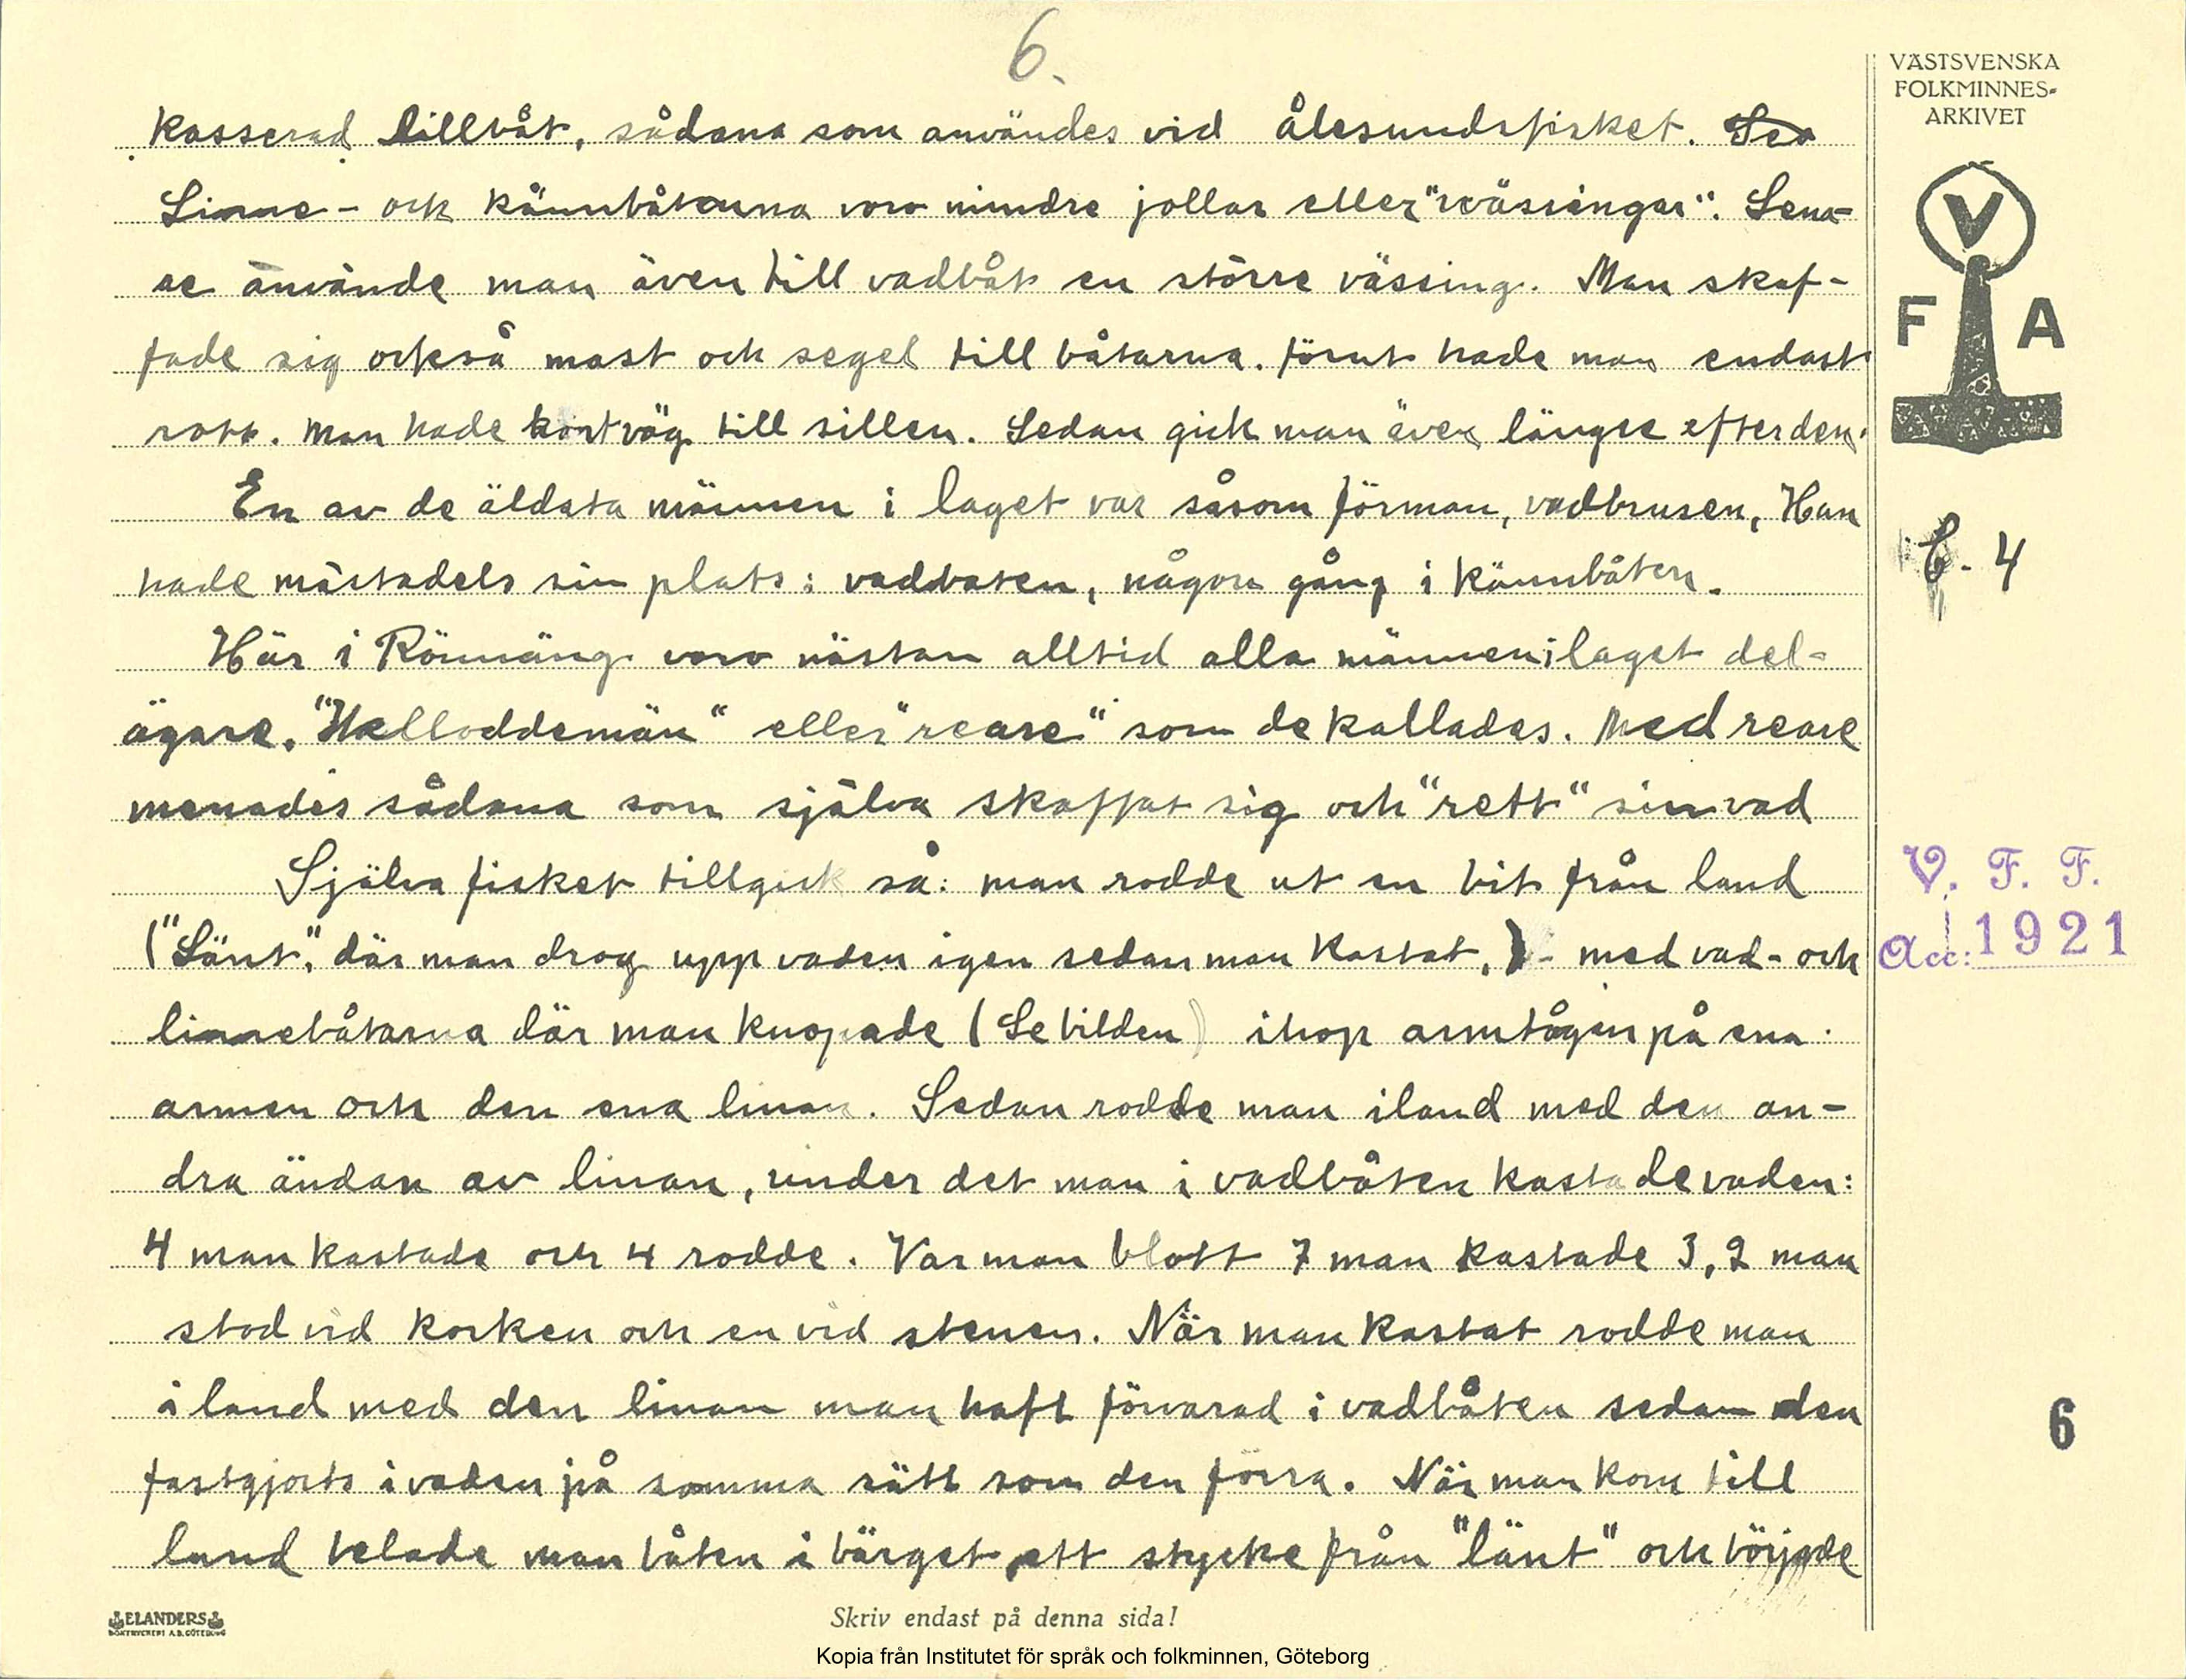 6.
VÄSTSVENSKA
FOLKMINNES-
ARKIVET
kasserad sillbåt, sådana som användes vid ålesundsfisket.
Linne- och kännbåtarna voro mindre jollar eller "wässingar". Sena-
re använde man även till vadbåt en större vässing. Man skaf-
fade sig också mast och segel till båtarna. Förut hade man endast
rott. Man hade kort väg till sillen. Sedan gick man även längre efter den.
En av de äldsta männen i laget var såsom förman, vadbrusen, Han
hade mästadels sin plats i vadbaten, någon gång i kännbåten.
Här i Rönnäng voro nästan alltid alla männen i laget del-
ägare. "Helloddemän" eller "reare" som de kallades. Med reare
menades sådana som själva skaffat sig och "rett" sin vad
Själva fisket tillgick så: man rodde ut en bit från land
("Länt", där man drog upp vaden igen sedan man kastat,) - med vad- och
linnebåtarna där man knopade (Se bilden) ihop armtågen på ena
armen och den ena linan. Sedan rodde man iland med den an-
dra ändan av linan, under det man i vadbåten kastade vaden:
4 man kastade och 4 rodde. Var man blott 7 man kastade 3, 2 man
stod vid korken och en vid stenen. När man kastat rodde man
i land med den linan man haft förvarad i vadbåten sedan den
fastgjorts i vaden på samma sätt som den förra. När man kom till
land belade man båten i bärget ett stycke från "länt" och började
V
F A
C. 4
V. F. F.
Acc: 1921
6
ELANDERS
BOKTRYCKERI A.B. GÖTEBORG
Skriv endast på denna sida!
Kopia från Institutet för språk och folkminnen, Göteborg